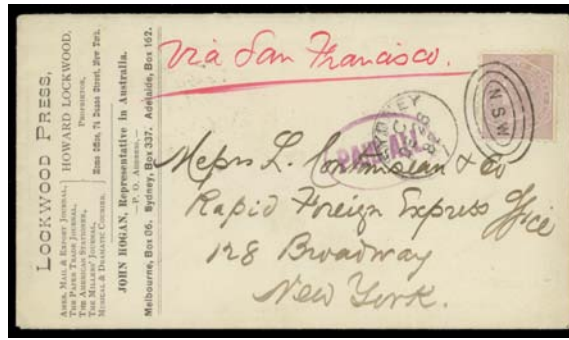 LOCKWOOD PRESS,
AMER. MAIL & EXPORT JOURNAL,
THE PAPER TRADE JOURNAL,
THE AMERICAN STATIONER,
THE MILLERS' JOURNAL,
MUSICAL & DRAMATIC COURIER.
HOWARD LOCKWOOD,
PROPRIETOR,
Home Office, 74 Duane Street, New York.
JOHN HOGAN, Representative in Australia.
—P. O. ADDRESS,—
Melbourne, Box 86. Sydney, Box 337. Adelaide, Box 162.
Via San Francisco.
NSW
SYDNEY
PAID ALL
Messrs L. & Co
Rapid Foreign Express Office
128 Broadway
New York.